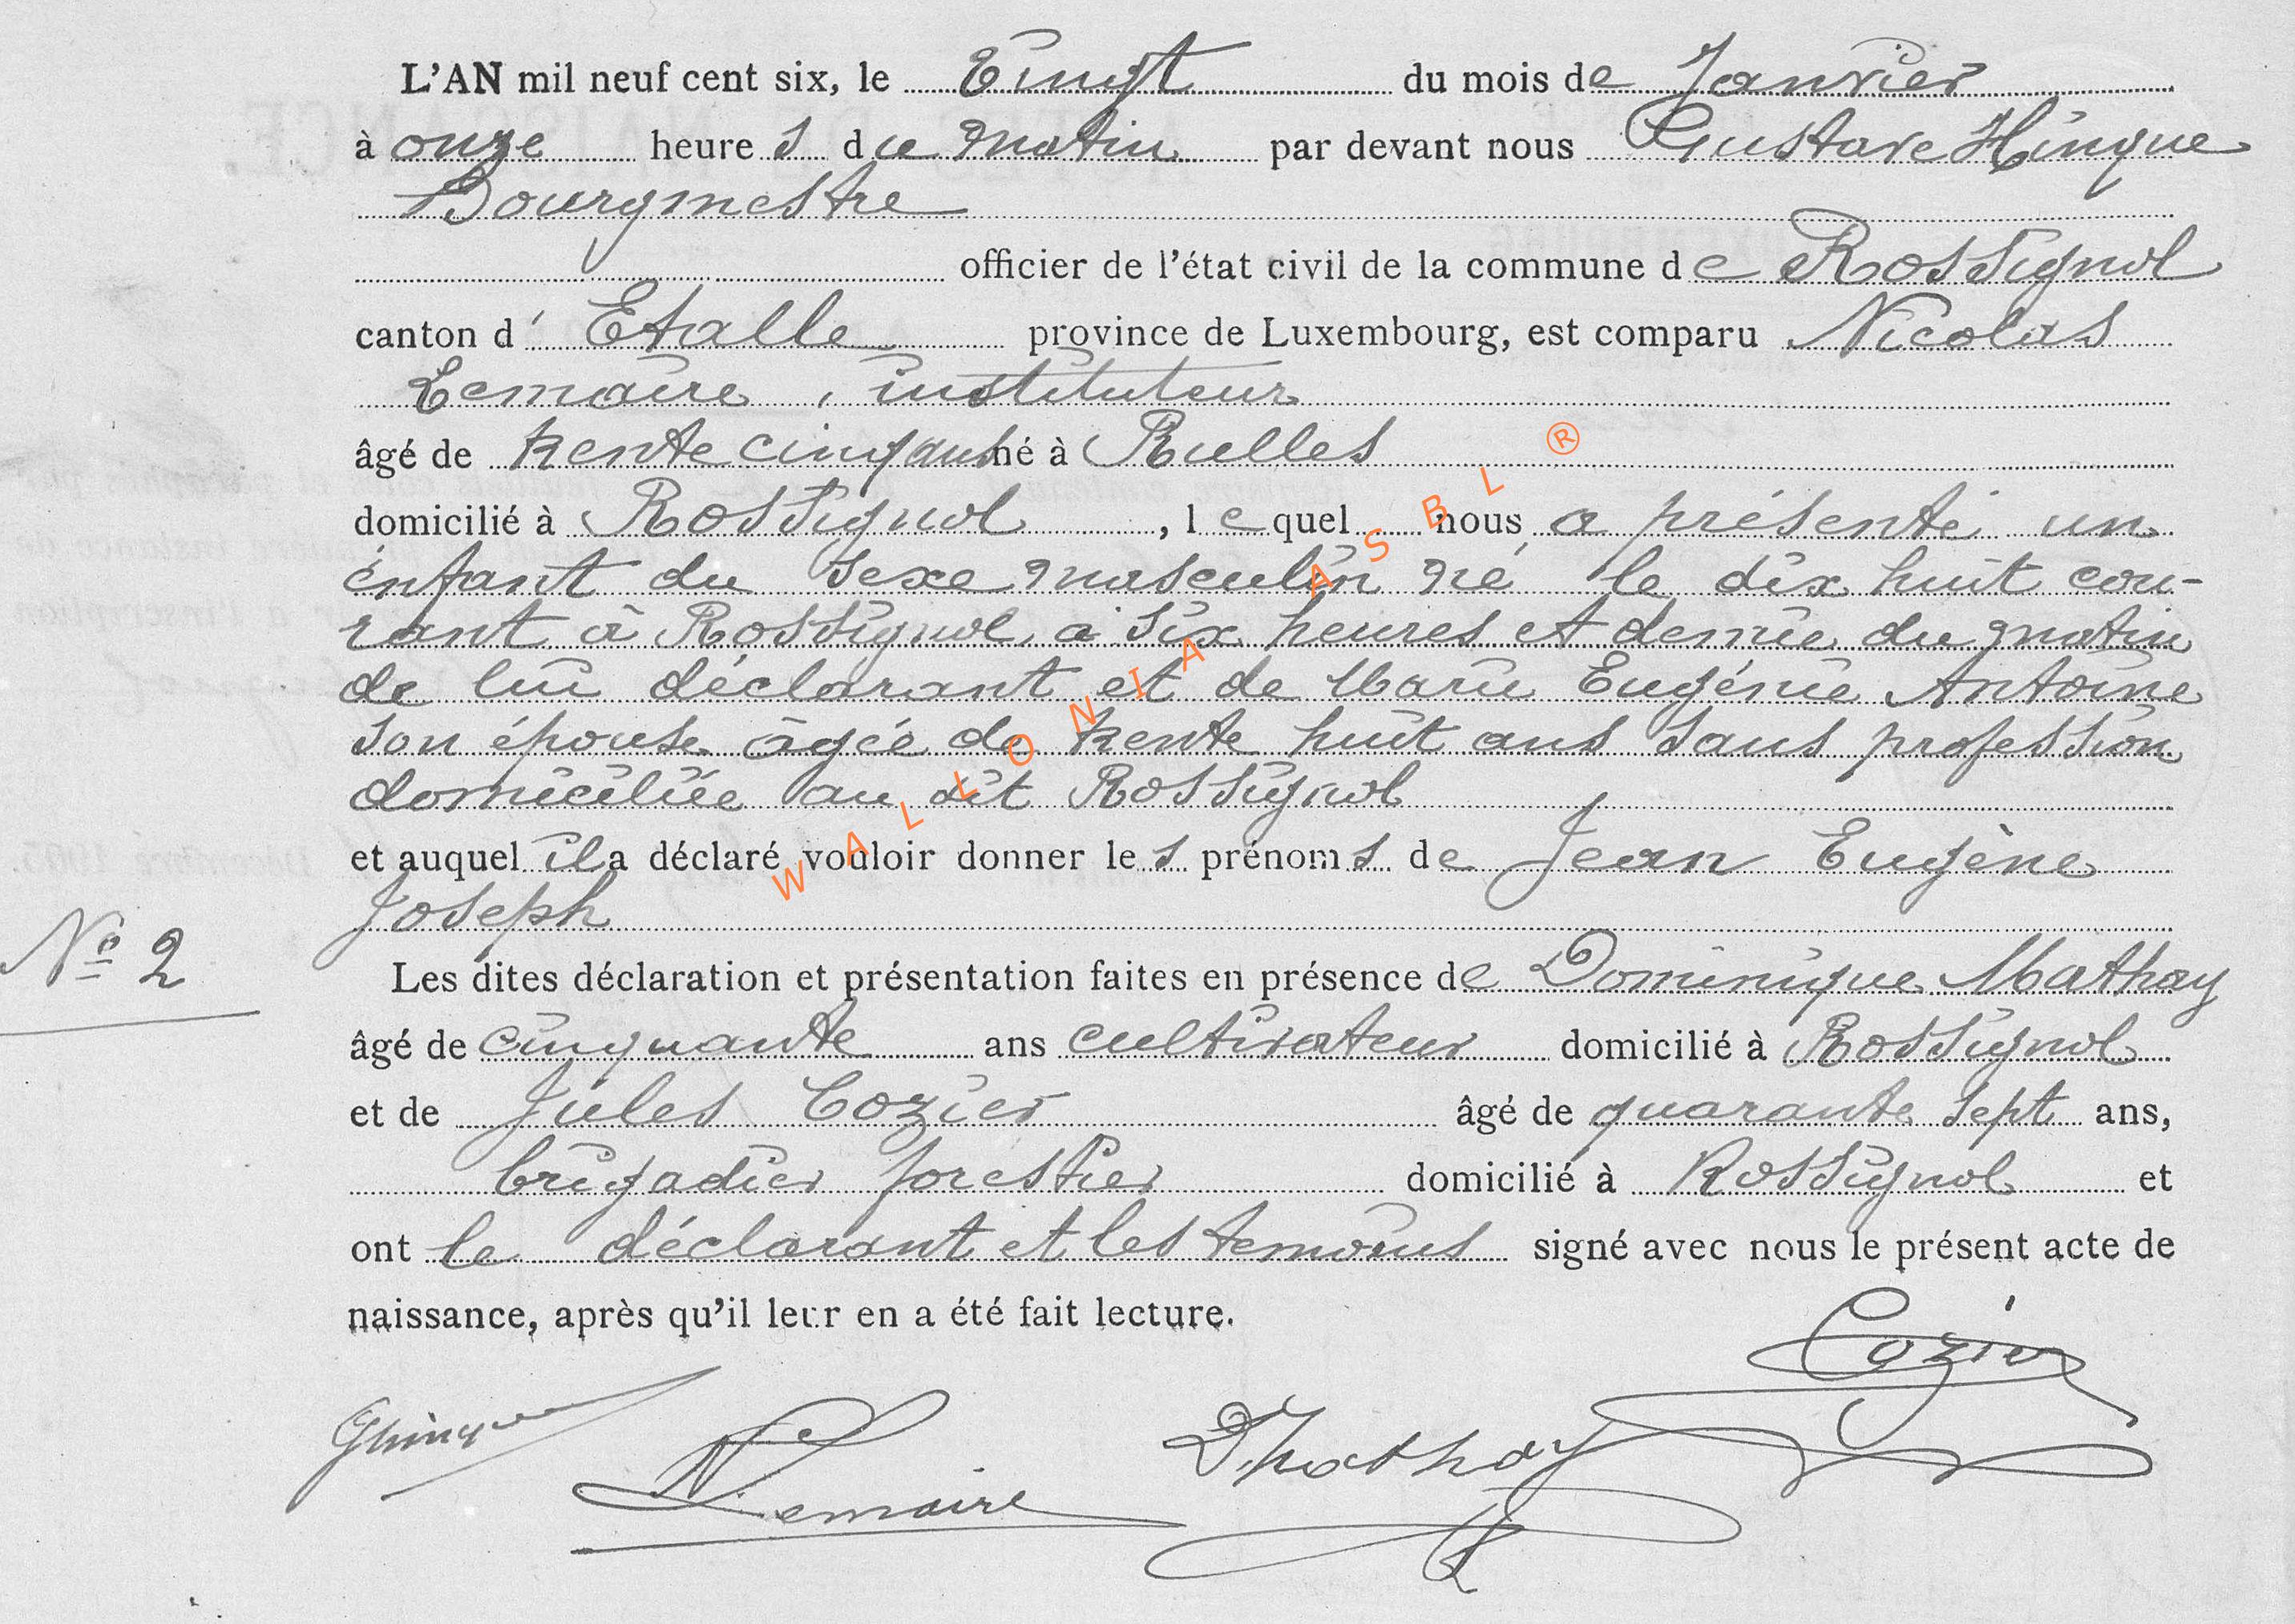 L'AN mil neuf cent six, le Vingt du mois de Janvier
à onze heures du matin par devant nous Gustave Hinque
Bourgmestre
officier de l'état civil de la commune de Rossignol
canton d'Etalle province de Luxembourg, est comparu Nicolas
Lemaire, instituteur
âgé de trente cinq ans né à Rulles
domicilié à Rossignol, lequel nous a présenté un
enfant du sexe masculin né le dix huit cou-
rant à Rossignol à six heures et demie du matin
de lui déclarant et de Marie Eugénie Antoine
son épouse âgée de trente huit ans sans profession
domiciliée au dit Rossignol
et auquel il a déclaré vouloir donner les prénoms de Jean Eugène
Joseph
N° 2
Les dites déclaration et présentation faites en présence de Dominique Mathay
âgé de cinquante ans cultivateur domicilié à Rossignol
et de Jules Cozier âgé de quarante sept ans,
brigadier forestier domicilié à Rossignol et
ont le déclarant et les témoins signé avec nous le présent acte de
naissance, après qu'il leur en a été fait lecture.
Cozier
GHinque
N Lemaire
D Mathay
WALLONIA ASBL ®